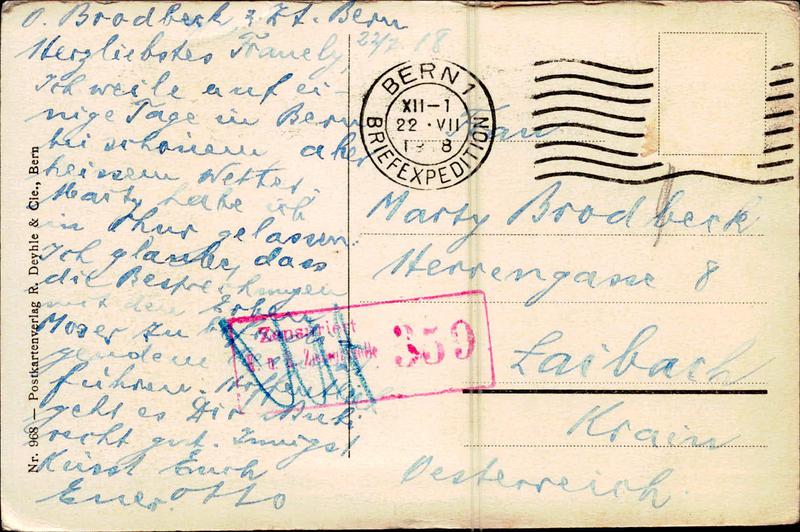 O. Brodbeck, z. Zt. Bern
22/7 18
Herzliebstes Frauely,
Ich weile auf ei-
nige Tage in Bern
bei schönem aber
heissem Wetter.
Marty habe ich
in Chur gelassen.
Ich glaube, dass
die Besprechungen
mit den Erben
Moser zu
gendem
führen. Hoffentlich
geht es Dir
recht gut. Innigst
Küsst Euch
Euer Otto
BERN 1
XII-1
22.VII
1918
BRIEFEXPEDITION
Frau
Marty Brodbeck
Herrengasse 8
Laibach
Krain
Oesterreich.
Zensuriert
359
Nr. 968 — Postkartenverlag R. Deyhle & Cie., Bern